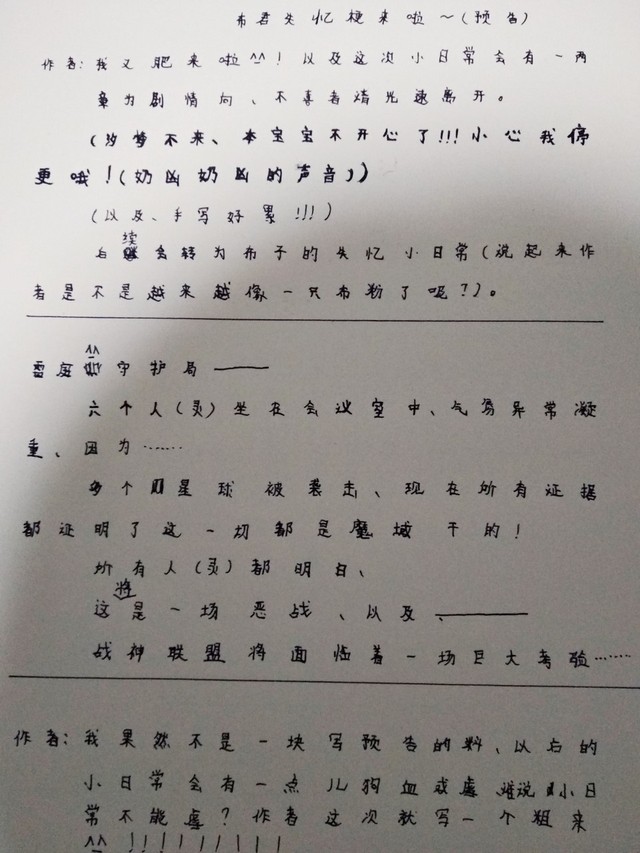 布君失忆梗来啦~(预告)
作者:我又肥来啦^^!以及这次小日常会有一两
章为剧情向、不喜者请光速离开。
(汐梦不来、本宝宝不开心了!!!小心我停
更哦!(奶凶奶凶的声音))
(以及、手写好累!!!)
后续会转为布子的失忆小日常(说起来作
者是不是越来越像一只布粉了呢?)。
雷霆^^守护局——
六个人(灵)坐在会议室中、气氛异常凝
重、因为……
多个星球被袭击、现在所有证据
都证明了这一切都是魔域干的!
所有人(灵)都明白、
这将是一场恶战、以及、——
战神联盟将面临着一场巨大考验……
作者:我果然不是一块写预告的料、以后的
小日常会有一点儿狗血或虐 难说 小日
常不能虐?作者这次就写一个粗来
^^!!!!!!!!!